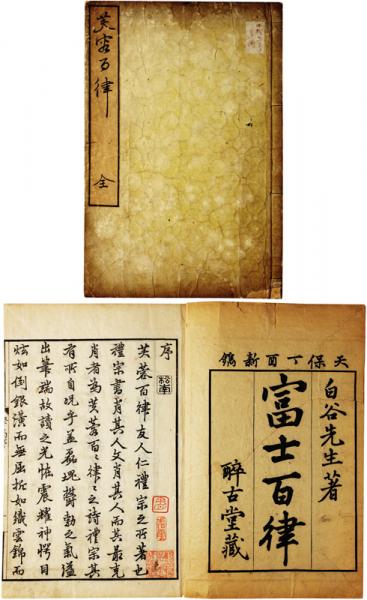 芙蓉百律 全
天保丁酉新鐫
白谷先生著
富士百律
醉古堂藏
序
芙蓉百律友人仁禮宗之所著也
禮宗書肖其人文肖其人而其最克
肖者為芙蓉百々律々之詩禮宗其
有所自況乎蓋磊塊鬱勃之氣溢
出筆端故讀之光怪震耀神愕目
眩如倒銀潢而無屈折如織雲錦而